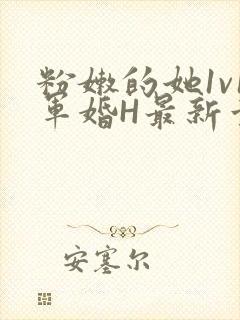 粉嫩的她1v1
军婚H最新章
安塞尔